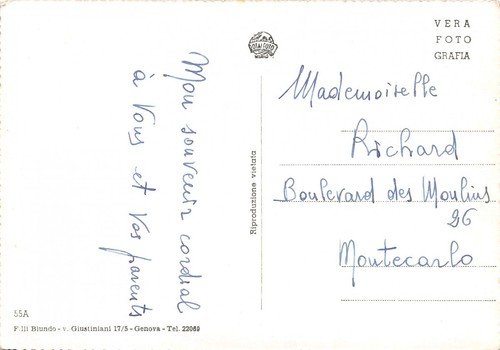 Mon souvenir cordial
à Vous et Vos parents
VERA
FOTO
GRAFIA
Mademoiselle
Richard
Boulevard des Moulins
26
Montecarlo
Riproduzione vietata
55A
F.lli Biundo - v. Giustiniani 17/5 - Genova - Tel. 22069